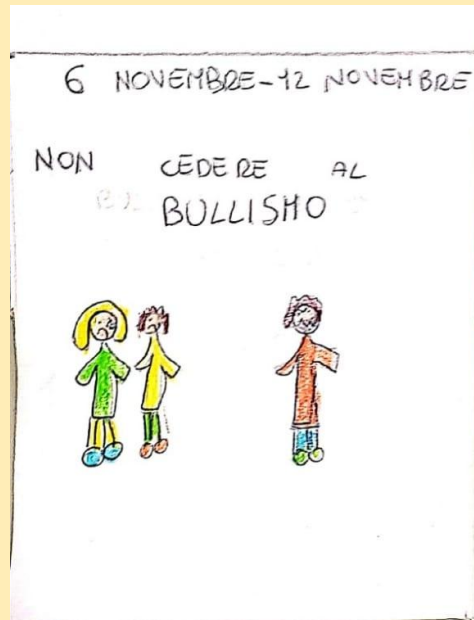 6 NOVEMBRE-12 NOVEMBRE
NON CEDERE AL
BULLISMO